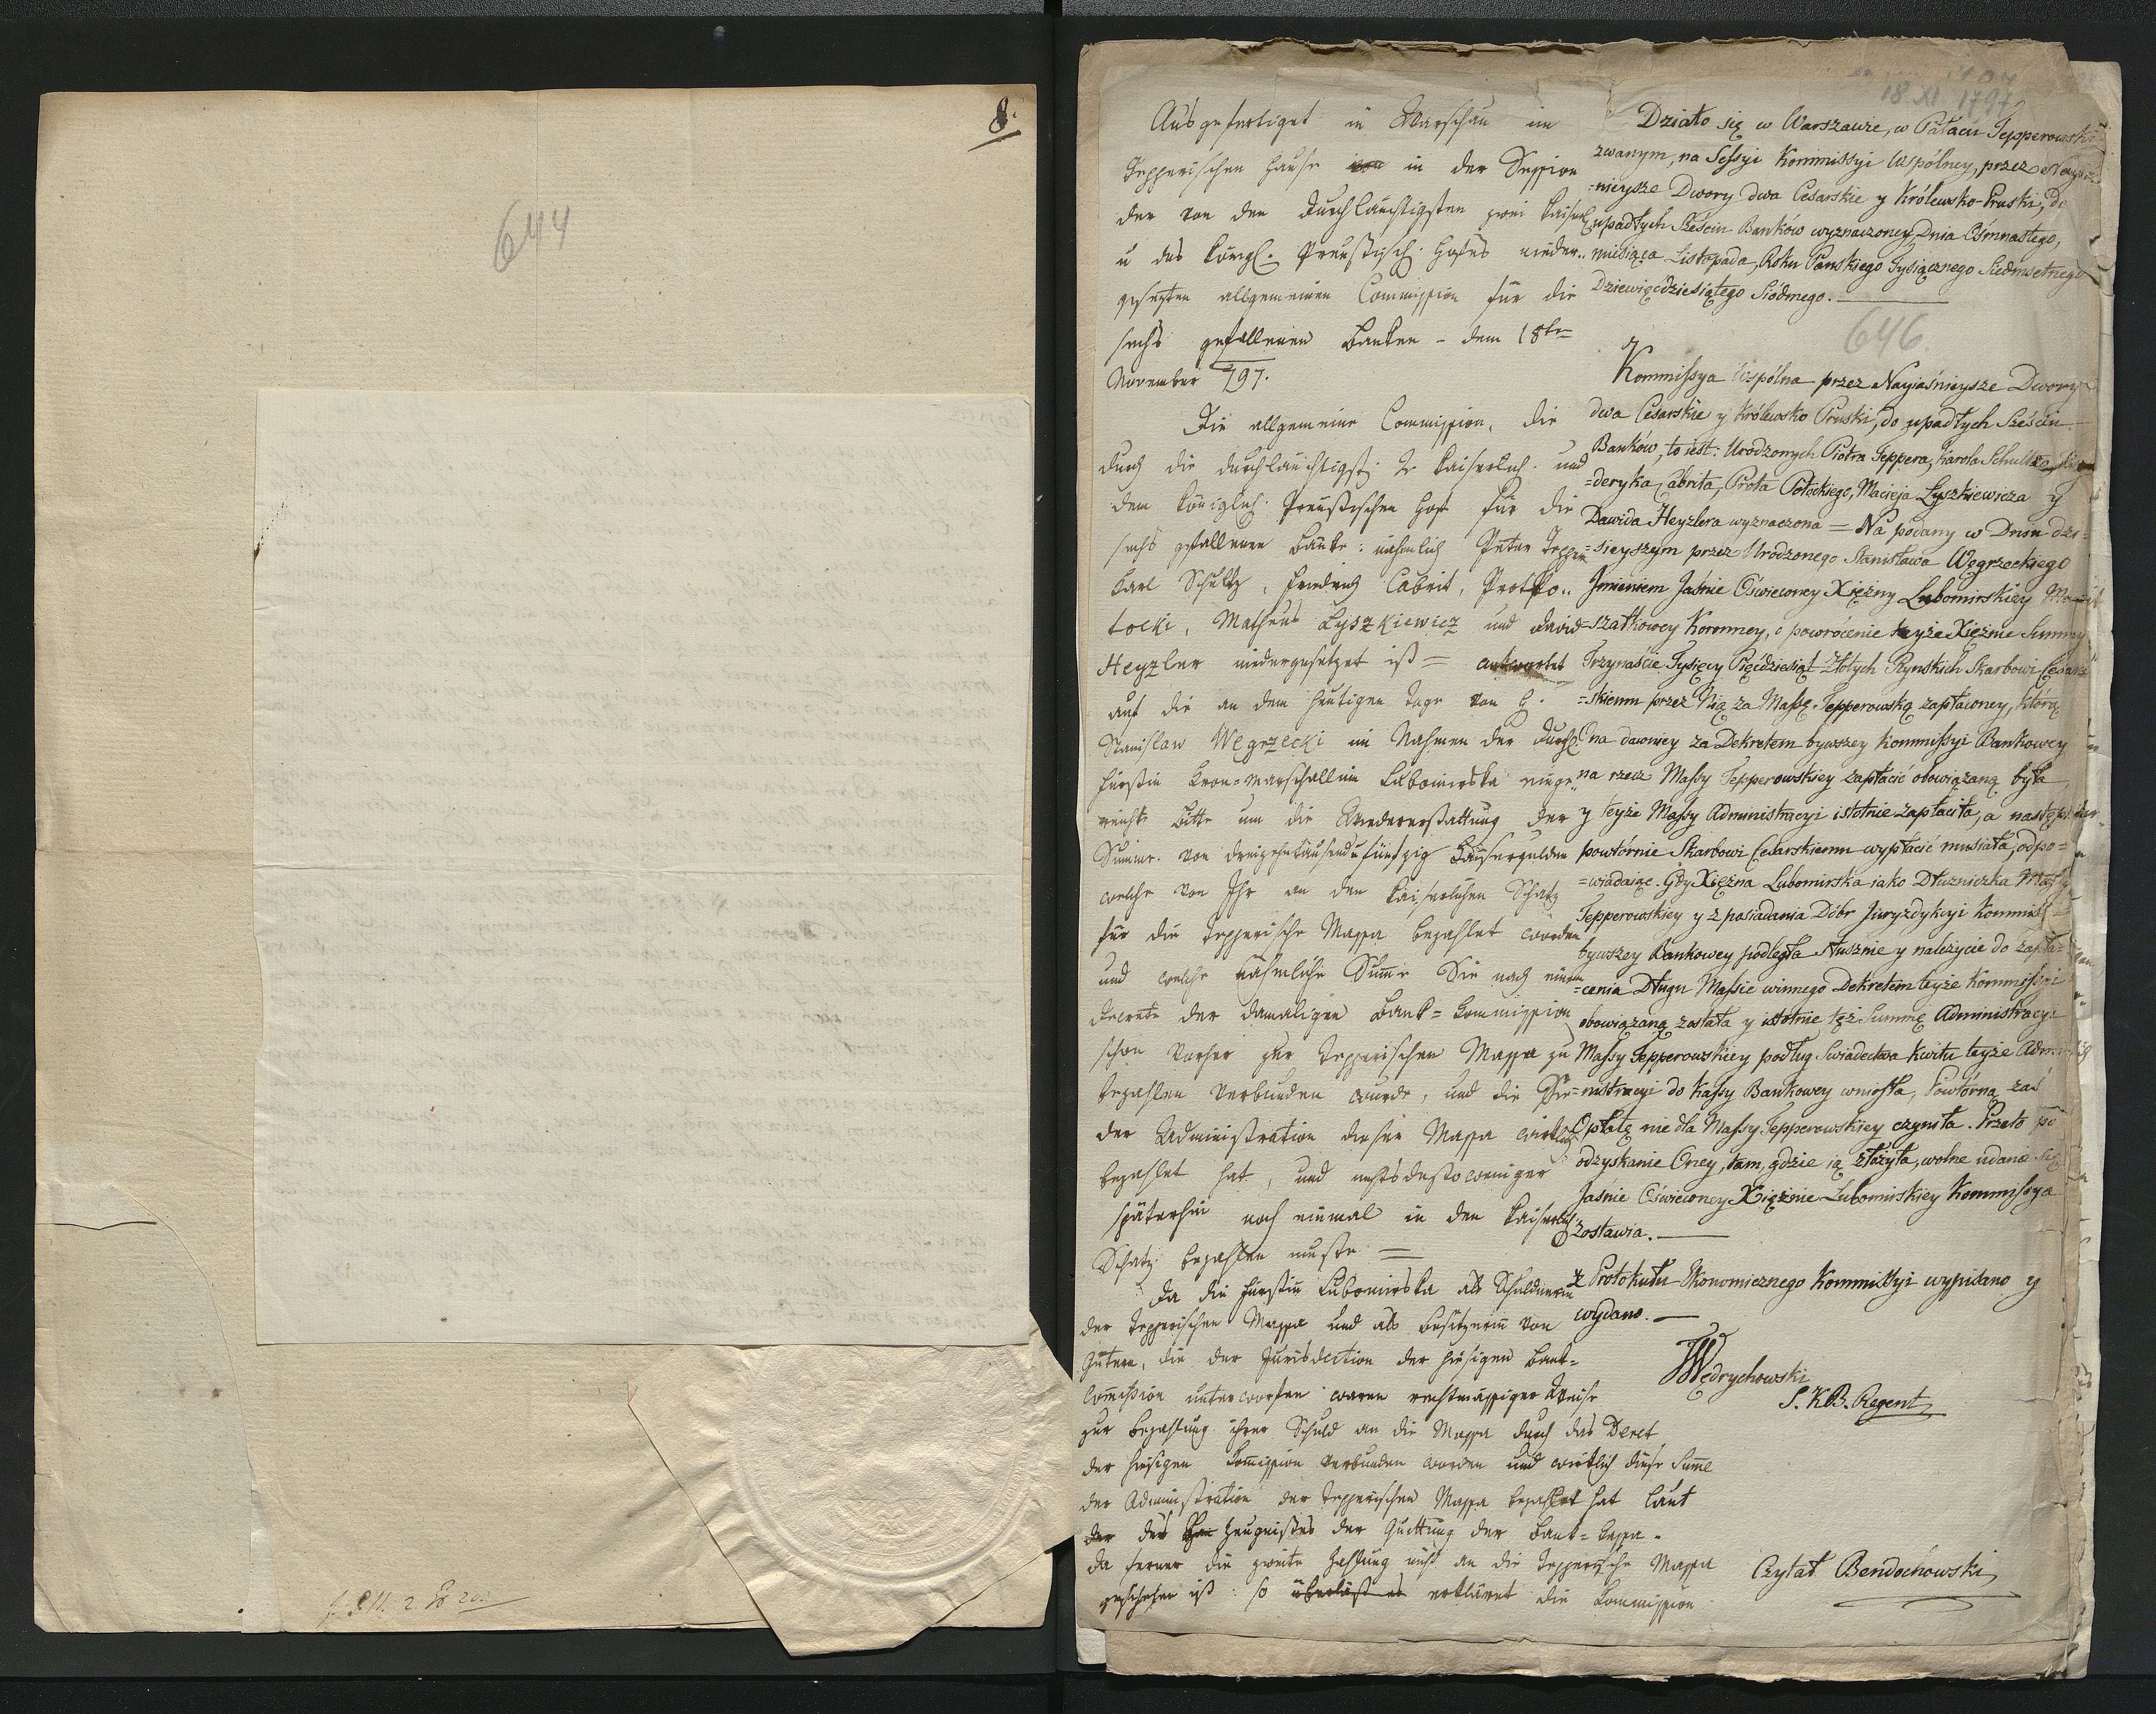 8.
644
18 XI 1797
646
Ausgefertiget in Warschau im
Tepperischen Hause von in der Session
der von den Durchlauchtigsten zwei Kaiserl.
u des Königl. Preußisch. Hofes nieder..
gesezten allgemeinen Commission für die
sechs gefallenen Banken - dem 18ten
November 797.
Die allgemeine Commission, die
durch die durchlauchtigst. 2 Kaiserlich. und
dem Königlich Preußischen Hof für die
sechs gefallenen Banke: nahmlich Peter Tepper
Karl Schultz, Friedrich Cabrit, Prot Po..
tocki, Matheus Łyszkiewicz und David
Heyzler niedergesetzet ist = antwortet
auf die an dem heutigen Tage von H.
Stanislaw Węgrzecki im Nahmen der Durchl.
Fürstin Kron=Marschallin Lubomirska einge..
reichte Bitte um die Wiedererstattung der
Summe von dreizehntausend u fünfzig Kaisergulden
welche von Ihr an den Kaiserlichen Schatz
für die Tepperische Massa bezahlet worden
und welche nahmliche Summe Sie nach einem
Decrete der damaligen Bank=Commission
schon vorher zur Tepperischen Massa zu
bezahlen verbunden wurde, und die Sie
der Administration dieser Massa wirklich
bezahlet hat, und nichts destoweniger
späterhin noch einmal in den Kaiserlich.
Schatz bezahlen mußte =
Da die Fürstin Lubomirska als Schuldnerin
der Tepperischen Massa und als Besitzerin von
Gütern, die der Jurisdiction der hiesigen Bank=
Commission unterworfen waren rechtmässiger Weise
zur Bezahlung ihrer Schuld an die Massa durch das Decret
der hiesigen Commission verbunden worden und wirklich diese Summe
der Administration der Tepperischen Massa bezahlet hat laut
der des Zeugnisses der Quittung der Bank=Cassa.
Da ferner die zweite Zahlung nicht an die Tepperische Massa
geschehen ist: so überläst es erkläret die Commission
Działo się w Warszawie, w Pałacu Tepperowski
zwanym, na Sessyi Kommissyi Wspólney, przez Nayiaś
=nieysze Dwory dwa Cesarskie y Królewsko-Pruski, do
upadłych Sześciu Banków wyznaczoney, Dnia Ośmnastego,
miesiąca Listopada, Roku Pańskiego Tysiącznego Siedmsetnego
Dziewięćdziesiątego Siódmego.
Kommissya Wspólna przez Nayiaśnieysze Dwory
dwa Cesarskie y Królewsko Pruski, do upadłych Sześciu
Banków, to iest: Urodzonych Piotra Teppera, Karola Schultza, Fry
=deryka Cabrita, Prota Potockiego, Macieja Łyszkiewicza y
Dawida Heyzlera wyznaczona = Na podany w Dniu dzi=
=sieyszym przez Urodzonego Stanisława Węgrzeckiego
Jmieniem Jaśnie Oświeconey Xiężny Lubomirskiey Mar
=szałkowey Koronney, o powrócenie teyże Xiężnie Summy
Trzynaście Tysięcy Pięćdziesiąt Złotych Rynskich Skarbowi Cesar
=skiemu przez Nią za Massę Tepperowską zapłaconey, którą
Ona dawniey za Dekretem bywszey Kommissyi Bankowey
na rzecz Massy Tepperowskiey zapłacić obowiązaną była
y teyże Massy Administracyi istotnie zapłaciła, a następnie
powtórnie Skarbowi Cesarskiemu wypłacić musiała, odpo=
=wiadaiąc. Gdy Xiężna Lubomirska iako Dłużniczka Massy
Tepperowskiey y z posiadania Dóbr Juryzdykcyi Kommissyi
bywszey Bankowey podległa słusznie y należycie do zapła=
=cenia Długu Massie winnego Dekretem teyże Kommissyi
obowiązaną została y istotnie tęż Summę Administracyi
Massy Tepperowskiey podług Swiadectwa Kwitu teyże Admi
=nistracyi do Kassy Bankowey wniosła, Powtórną zaś
Opłatę nie dla Massy Tepperowskiey czyniła. Przeto po
odzyskanie Oney, tam, gdzie ią złożyła, wolne udanie się
Jaśnie Oświeconey Xiężnie Lubomirskiey Kommissya
zostawia.
Z Protokułu Ekonomicznego Kommissyi wypisano y
wydano.
Wędrychowski
S. K. B. Regent
Czytał Bendochowski